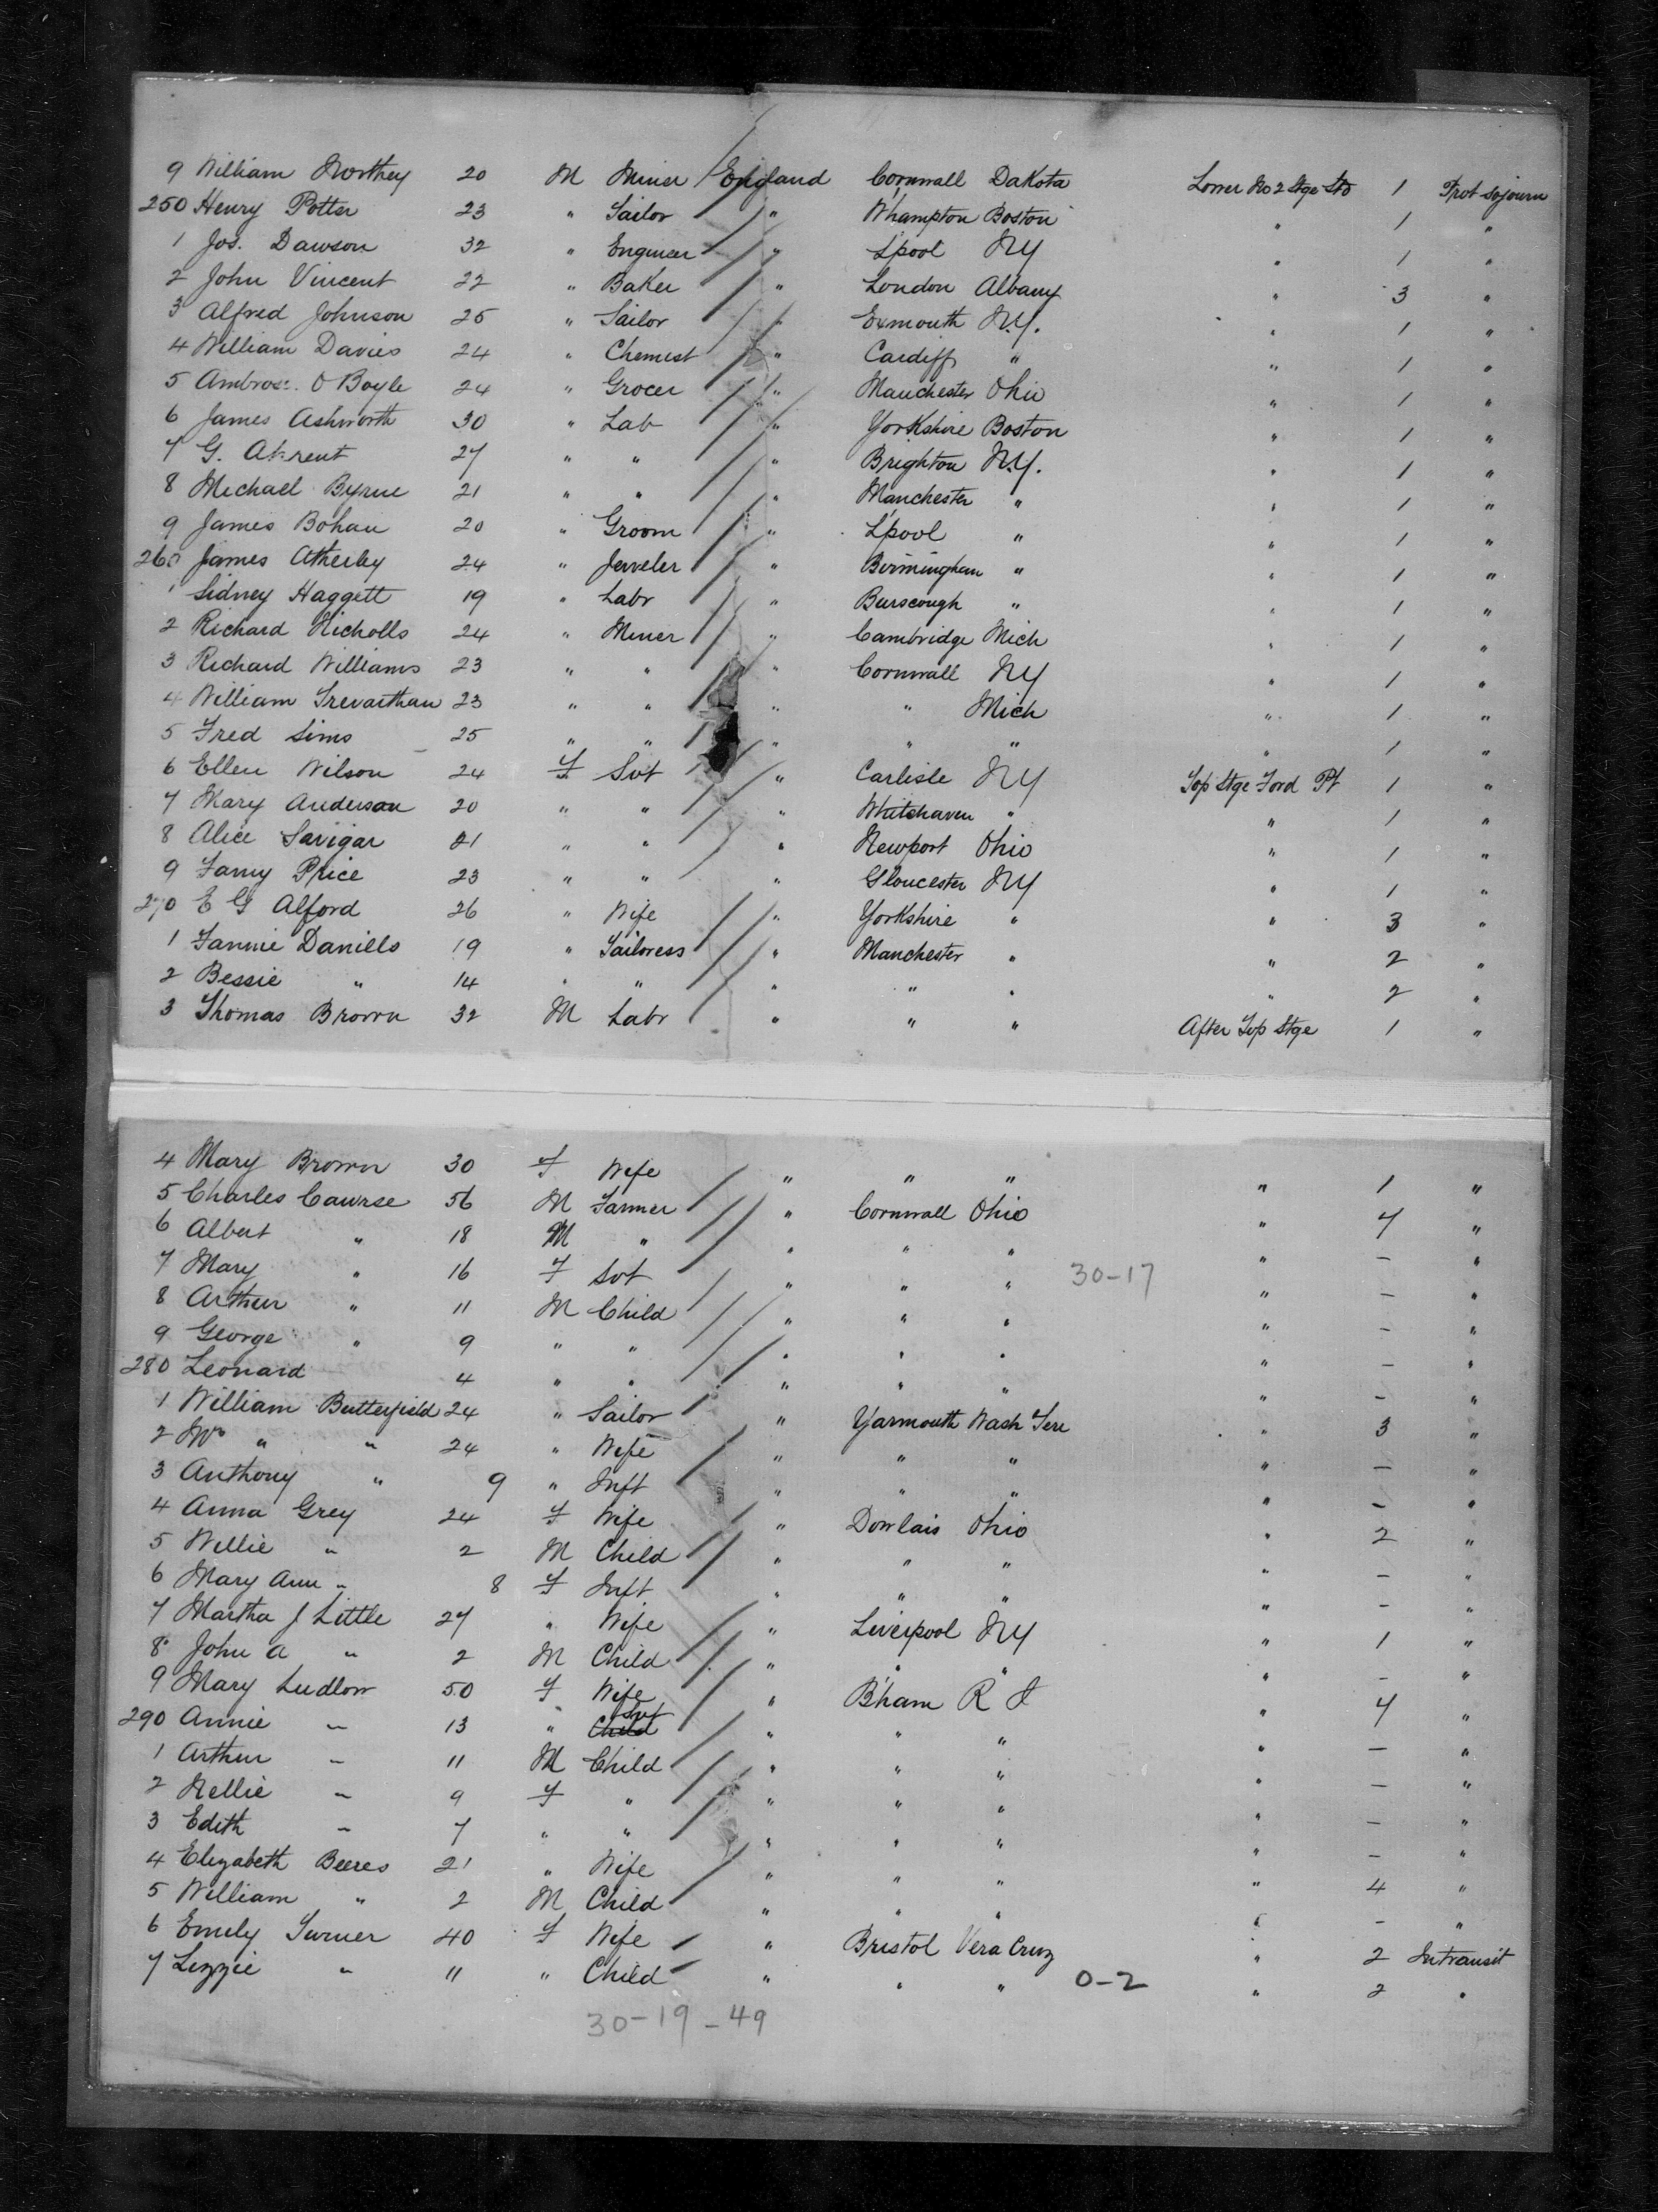 9 William Northey 20 M Miner England Cornwall Dakota Lower No 2 Stge Stb 1 Prot Sojourn
250 Henry Potter 23 " Sailor " W'hampton Boston " 1 "
1 Jos. Dawson 32 " Engineer " L'pool NY " 1 "
2 John Vincent 22 " Baker " London Albany " 3 "
3 Alfred Johnson 25 " Sailor " Exmouth N.Y. " 1 "
4 William Davies 24 " Chemist " Cardiff " " 1 "
5 Ambrose O Boyle 24 " Grocer " Manchester Ohio " 1 "
6 James Ashworth 30 " Lab " Yorkshire Boston " 1 "
7 G. 27 " " " Brighton N.Y. " 1 "
8 Michael Byrne 21 " " " Manchester " " 1 "
9 James Bohan 20 " Groom " L'pool " " 1 "
260 James Atherley 24 " Jeweler " Birmingham " " 1 "
1 Sidney Haggett 19 " Labr " Burscough " " 1 "
2 Richard Nicholls 24 " Miner " Cambridge Mich " 1 "
3 Richard Williams 23 " " " Cornwall NY " 1 "
4 William Trevarthan 23 " " " " Mich " 1 "
5 Fred Sims 25 " " " " " " 1 "
6 Ellen Wilson 24 F Svt " Carlisle NY Top Stge Ford Pt 1 "
7 Mary Anderson 20 " " " Whitehaven " " 1 "
8 Alice Savigar 21 " " " Newport Ohio " 1 "
9 Fanny Price 23 " " " Gloucester NY " 1 "
270 E G Alford 26 " Wife " Yorkshire " " 3 "
1 Fannie Daniells 19 " Tailoress " Manchester " " 2 "
2 Bessie " 14 " " " " " " 2 "
3 Thomas Brown 32 M Labr " " " After Top Stge 1 "
4 Mary Brown 30 F Wife " " " " 1 "
5 Charles Cawrse 56 M Farmer " Cornwall Ohio " 7 "
6 Albert " 18 M " " " " " - "
7 Mary " 16 F Svt " " " 30-17 " - "
8 Arthur " 11 M Child " " " " - "
9 George " 9 " " " " " " - "
280 Leonard 4 " " " " " " - "
1 William Butterfield 24 " Sailor " Yarmouth Wash Terr " 3 "
2 Mrs " " 24 " Wife " " " " - "
3 Anthony " 9 " Inft " " " " - "
4 Anna Grey 24 F Wife " Dowlais Ohio " 2 "
5 Willie " 2 M Child " " " " - "
6 Mary Ann " 8 F Inft " " " " - "
7 Martha J Little 27 " Wife " Liverpool NY " 1 "
8 John A " 2 M Child " " " " - "
9 Mary Ludlow 50 F Wife " B'ham R I " 7 "
290 Annie " 13 " Child Svt " " " " - "
1 Arthur " 11 M Child " " " " - "
2 Nellie " 9 F " " " " " - "
3 Edith " 7 " " " " " " - "
4 Elizabeth Beeres 21 " Wife " " " " 4 "
5 William " 2 M Child " " " " - "
6 Emily Turner 40 F Wife " Bristol Vera Cruz " 2 Intransit
7 Lizzie " 11 " Child " " " 0-2 " 2 "
30-19-49